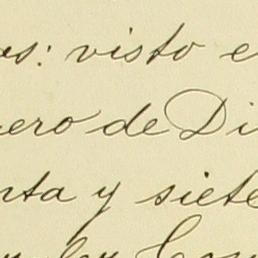 os: visto e
ero de Di
nta y siete